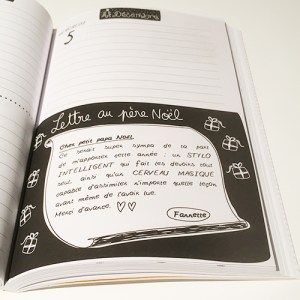 Décembre
5
Lettre au père Noël
Cher petit papa Noël,
Ce serait super sympa de ta part
de m'apporter cette année : un STYLO
INTELLIGENT qui fait les devoirs tout
seul, ainsi qu'un CERVEAU MAGIQUE
capable d'assimiler n'importe quelle leçon
avant même de l'avoir lue.
Merci d'avance. ♡♡
Fannette